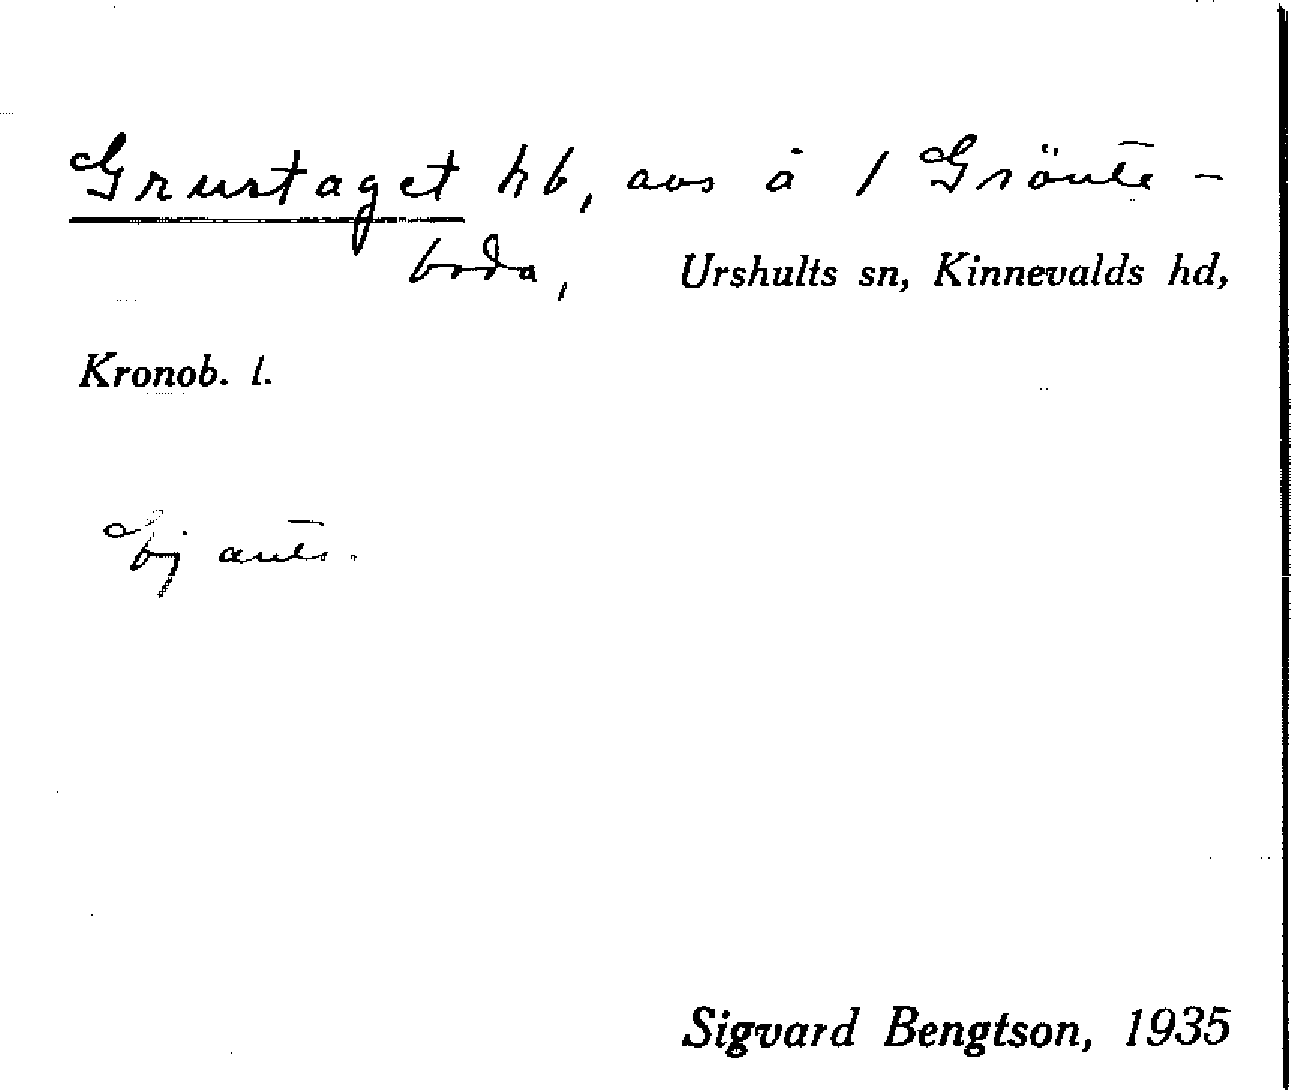 Grustaget hb, avs å 1 Grönte-
boda, Urshults sn, Kinnevalds hd,
Kronob. l.
Ej ants.
Sigvard Bengtson, 1935